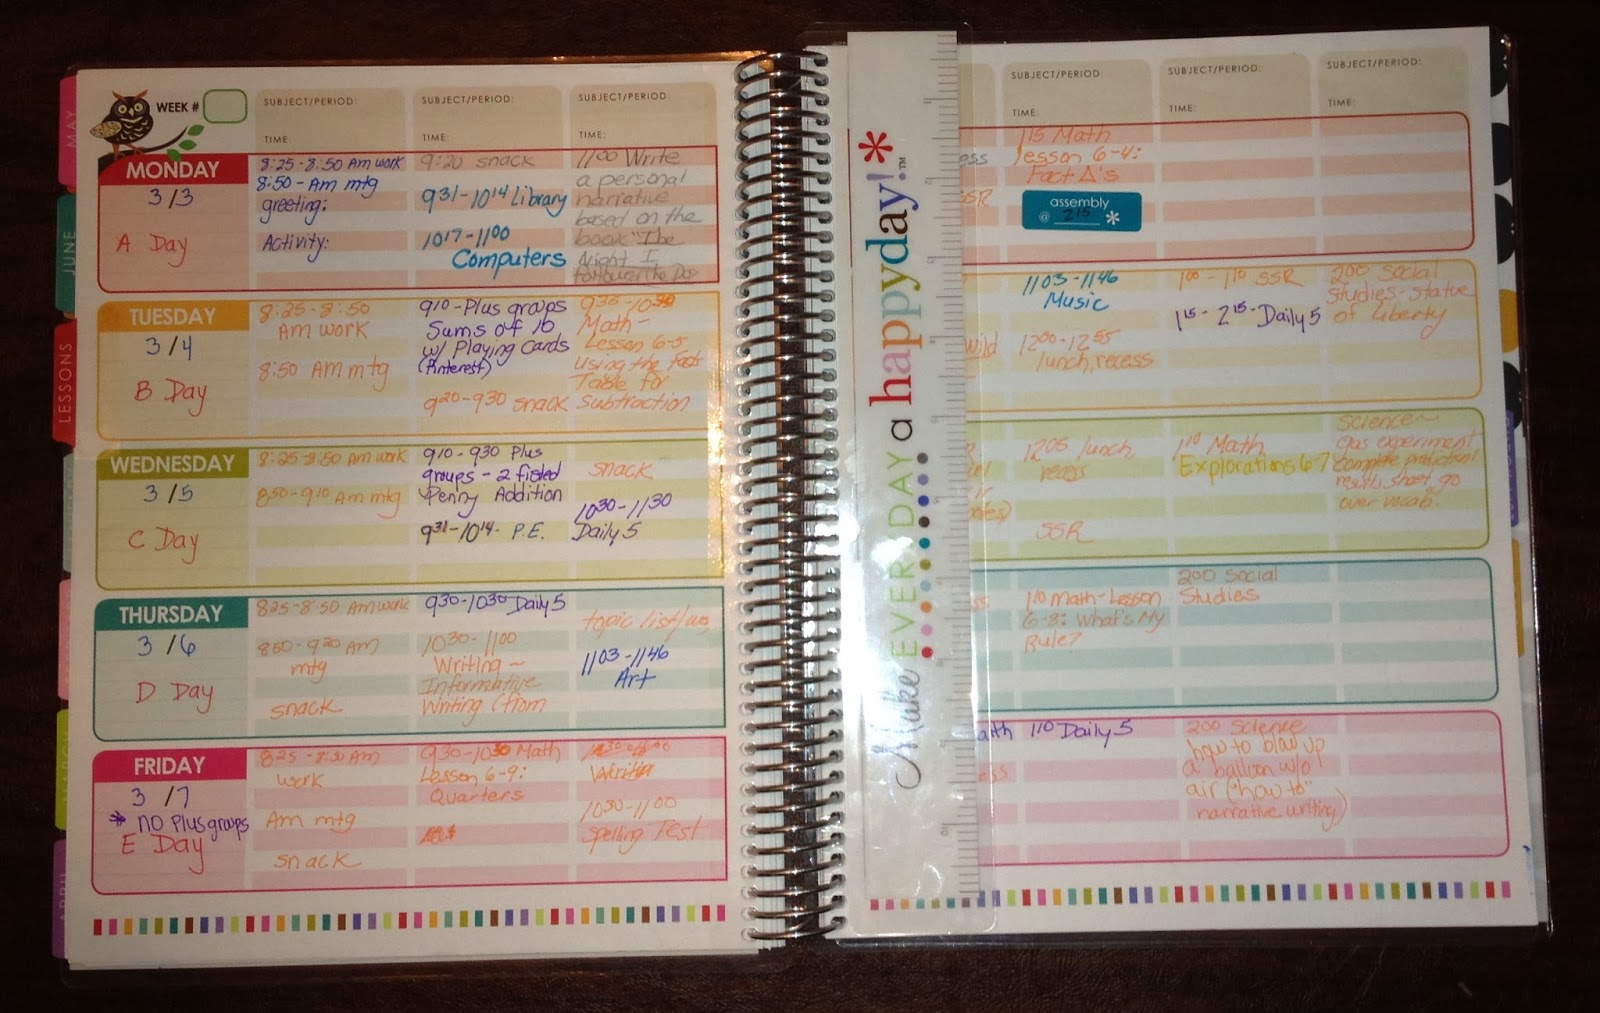 WEEK #
SUBJECT/PERIOD:
TIME:
SUBJECT/PERIOD:
TIME:
SUBJECT/PERIOD:
TIME:
MONDAY
3/3
A Day
8:25-8:50 Am work
8:50-Am mtg
greeting:
Activity:
9:20 snack
931-1014 Library
1017-1100
Computers
1100 Write
a personal
narrative
based on the
book "The
Night I
followed the Dog
TUESDAY
3/4
B Day
8:25-8:50
Am work
8:50 AM mtg
910-Plus groups
Sums of 10
w/ Playing Cards
(Pinterest)
920-930 snack
935-1030
Math-
Lesson 6-5
using the Facts
Table for
Subtraction
WEDNESDAY
3/5
C Day
8:25-8:50 AM work
850-910 Am mtg
910-930 Plus
groups-2 fisted
Penny Addition
931-1014- P.E.
snack
1030-1130
Daily 5
THURSDAY
3/6
D Day
825-850 Am work
850-920 Am
mtg
snack
930-1030 Daily 5
1030-1100
Writing~
Informative
Writing (from
topic list/
1103-1146
Art
FRIDAY
3/7
* no Plus groups
E Day
825-850 Am
work
Am mtg
snack
930-1030 Math
Lesson 6-9:
Quarters
Writing
1030-1100
Spelling Test
MAY
JUNE
LESSONS
APRIL
Make EVERY DAY a happy day!*™
SUBJECT/PERIOD:
TIME:
SUBJECT/PERIOD:
TIME:
SUBJECT/PERIOD:
TIME:
SSR
115 Math
lesson 6-4:
Fact Δ's
assembly
@ 215 *
1103-1146
Music
1200-1255
lunch, recess
100-110 SSR
115-215-Daily 5
200 Social
Studies-Statue
of Liberty
1205 lunch,
recess
SSR
110 Math
Explorations 6-7
Science~
gas experiment
complete prediction/
results sheet, go
over vocab.
110 Math-Lesson
6-8: What's My
Rule?
200 Social
Studies
110 Daily 5
200 Science
how to blow up
a balloon w/o
air ("how to"
narrative writing)